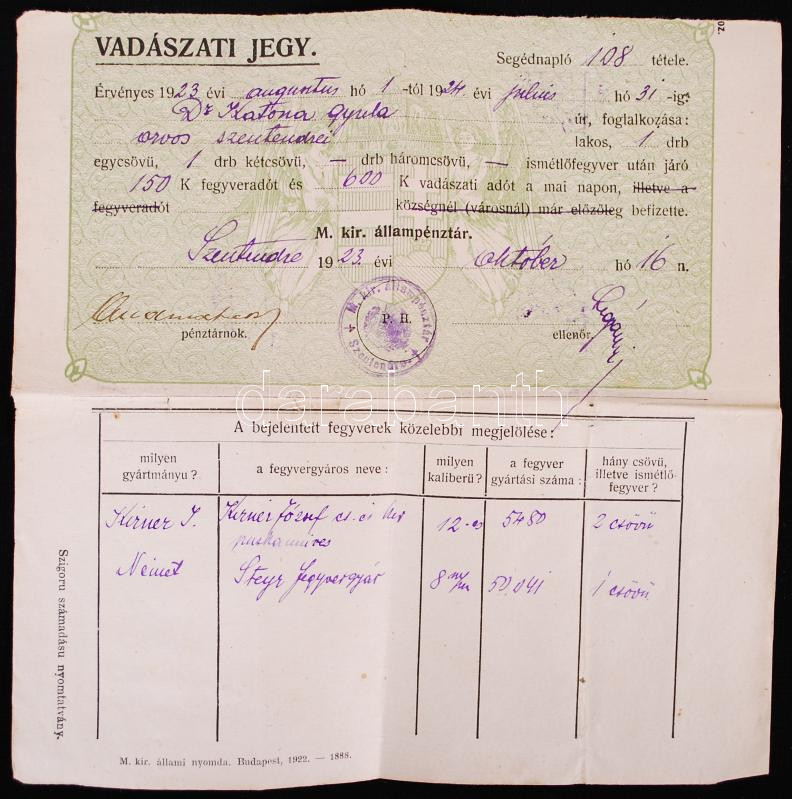 VADÁSZATI JEGY.
Segédnapló 108 tétele.
Érvényes 1923 évi augusztus hó 1 -tól 1924 évi július hó 31 -ig.
Dr Katona Gyula úr, foglalkozása:
orvos szentendrei lakos, 1 drb
egycsövü, 1 drb kétcsövü, — drb háromcsövü, — ismétlőfegyver után járó
150 K fegyveradót és 600 K vadászati adót a mai napon, illetve a
fegyveradót községnél (városnál) már előzőleg befizette.
M. kir. állampénztár.
Szentendre 1923. évi október hó 16 n.
M. kir. állampénztár
Szentendre
P. H.
pénztárnok.
ellenőr.
darabanth
A bejelentett fegyverek közelebbi megjelölése:
milyen gyártmányu?
a fegyvergyáros neve:
milyen kaliberü?
a fegyver gyártási száma:
hány csövü, illetve ismétlő-fegyver?
Kirner J. Kirner József cs. és kir 12-es 5480 2 csövü
puskamüves
Német Steyr fegyvergyár 8 m/m 50,041 1 csövü
Szigoru számadásu nyomtatvány.
M. kir. állami nyomda. Budapest, 1922. — 1888.